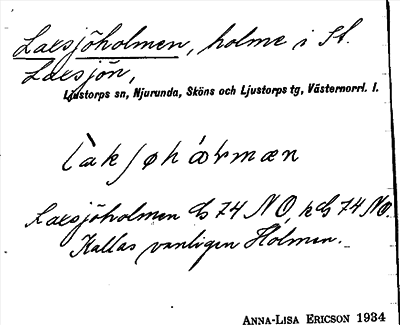 Laxsjöholmen, holme i St.
Laxsjön,
Ljustorps sn, Njurunda, Sköns och Ljustorps tg, Västernorrl. l.
Laxsjöholmen 74 NO, 74 NO.
Kallas vanligen Holmen.
ANNA-LISA ERICSON 1934